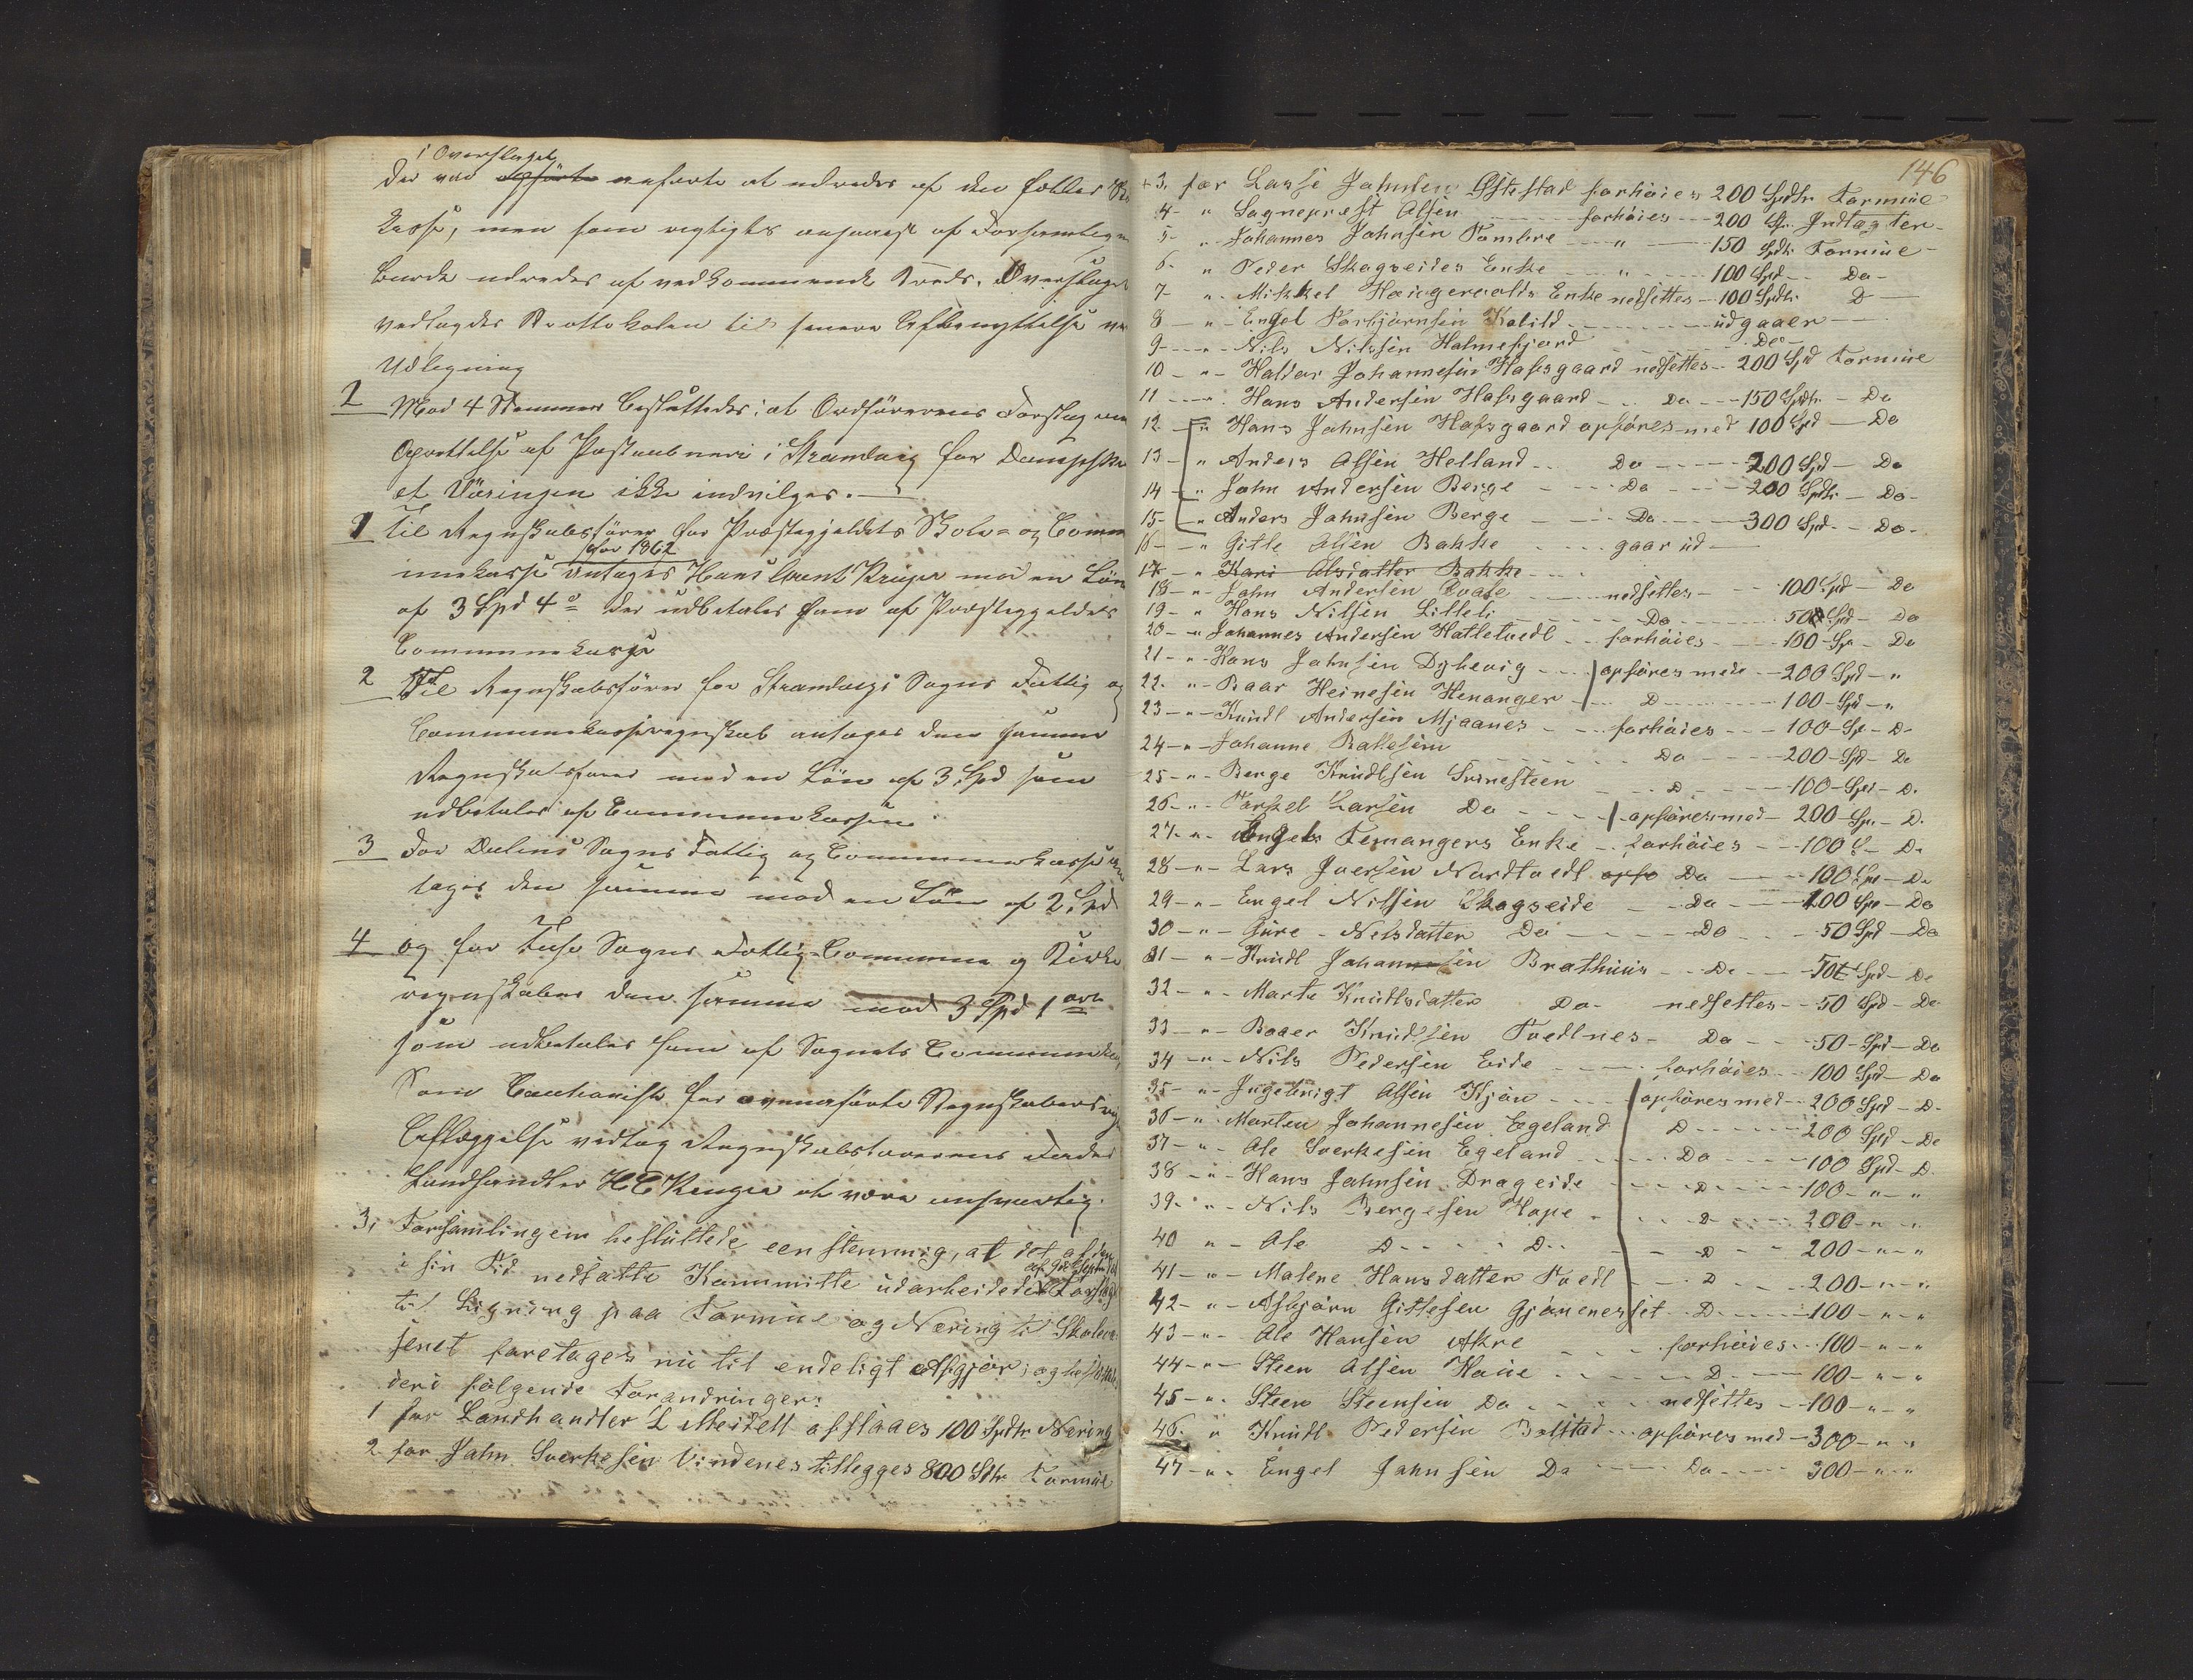 i Overslaget
der var opførte anførte at udredes af den fælles
kasse, men som rigtigts ansaaes af Forsamlingen
burde udredes af vedkommende Sogns. Overslaget
vedlagdes Protokolen til senere Afbenyttelse ved
Udligning
2 Mod 4 Stemmer besluttedes: at Ordførerens Forslag om
Oprettelse af Postaabneri i Strandvig for Dampski
et Vöringen ikke indvilges.
1 Til Regnskabsfører for Præstegjeldets Skole- og Comm
for 1862
unekasse antages Hans Grent Krüger mod en Løn
af 3 Spd 4 der udbetales ham af Præstegjeldets
Communekasse
2 Til Regnskabsfører for Strandvigs Sogns Fattig og
Communekasseregnskab antages den samme
Regnskabsfører mod en Løn af 3 Spd som
udbetales af Communekassen.
3 For Oulens Sogns Fattig og Communekasse an
tages den samme mod en Løn af 2 Spd
4 og for Fuse Sogns Fattig-Commune og Kirke
regnskaber den samme mod 3 Spd 1 ort
som udbetales ham af Sognets Communekas
Som Cautionist for ovenanførte Regnskabers rig
Aflæggelse vedtog Regnskabsførerens Fader
Landhandler H C Krüger at være ansvarlig.
3, Forsamlingen besluttede eenstemmig, at det af den
i sin Tid nedsatte Kommitte udarbeidede Forslag
til Ligning paa Formue og Næring til Skolevæ
senet foretages nu til endeligt Afgjør; og besluttede
deri følgende Forandringer:
1 for Landhandler L Meidell afslaaes 100 Spdlr Næring
2 for John Sverkesen Vindenes tillegges 800 Spdlr Formue
146
+3. for Lasse Johnsen Øfstestad forhøies 200 Spdlr Formue
4- " Sogneprest Olsen forhøies 200 Sp. Indtægter
5- " Johannes Johnsen Tombre " 150 Spdlr Formue
6- " Peder Skagseides Enke " 100 Spd Do
7- " Mikkel Hougervolds Enke nedsettes 100 Spdlr D
8 - " Engel Torbjørnsen Kolild udgaaer
9- " Nils Nilssen Holmefjord Do
10 - " Haldor Johannesen Hafsgaard nedsettes 200 Spd Formue
11 - " Hans Andersen Hafsgaard Do 150 Spdlr Do
12 - " Hans Johnsen Hafsgaard opføres med 100 Spd Do
13 - " Anders Olsen Helland Do 200 Spd Do
14 - " John Andersen Berge Do 200 Spdlr Do
15- " Anders Johnsen Berge Do 300 Spd Do
16- " Gitle Olsen Bakke gaar ud
17 - " Kari Olsdatter Bakke
18- " John Andersen Qvale nedsettes 100 Spd Do
19- " Hans Nilsen Lilleli Do 50 Spd Do
20- " Johannes Andersen Hatletvedt forhøies 100 Sp Do
21- " Hans Johnsen Dyhevig opføres med 200 Spd "
22- " Baar Heinesen Henanger D 100 Spd "
23- " Knudt Andersen Mjaanes forhøies 100 Sp D
24- " Johanne Rollesein Do 200 Spd Do
25- " Berge Knudtsen Svinesteen D 100 Spd D.
26- " Torkel Larsen Do opføres med 200 Sp. D.
27- " Engels Femangers Enke forhøies 100 S Do
28- " Lars Iversen Nordtvedt opfø Do 100 Spd Do
29- " Engel Nilsen Skagseide Do 100 Spd Do
30- " Guro Nilsdatter Do Do 50 Spd Do
31- " Knudt Johannesen Brathuus Do 50 Spd Do
32- " Marta Knudtsdatter Do nedsettes 50 Spd Do
33- " Baaer Knudtsen Tvedtnes Do 50 Spd Do
34- " Nils Pedersen Eide forhøies 100 Spd Do
35- " Ingebrigt Olsen Kjøn opføres med 200 Spd D
36- " Morten Johannesen Egeland D 200 Spd Do
37- " Ole Sverkesen Egeland Do 100 Spd D.
38- " Hans Johnsen Drageide D 100 " "
39- " Nils Bergesen Hope D 200 " "
40 " Ole D D D 200 " "
41- " Malene Hansdatter Tvedt D 200 " "
42- " Asbjørn Gitlesen Gjønenesset D 100 " "
43- " Ole Hansen Akre forhøies 100 " "
44- " Steen Olsen Houe D 100 " "
45- " Steen Steensen Do nedsettes 100 " "
46- " Knudt Pedersen Bolstad opføres med 300 " "
47- " Engel Johnsen Do Do 300 " "